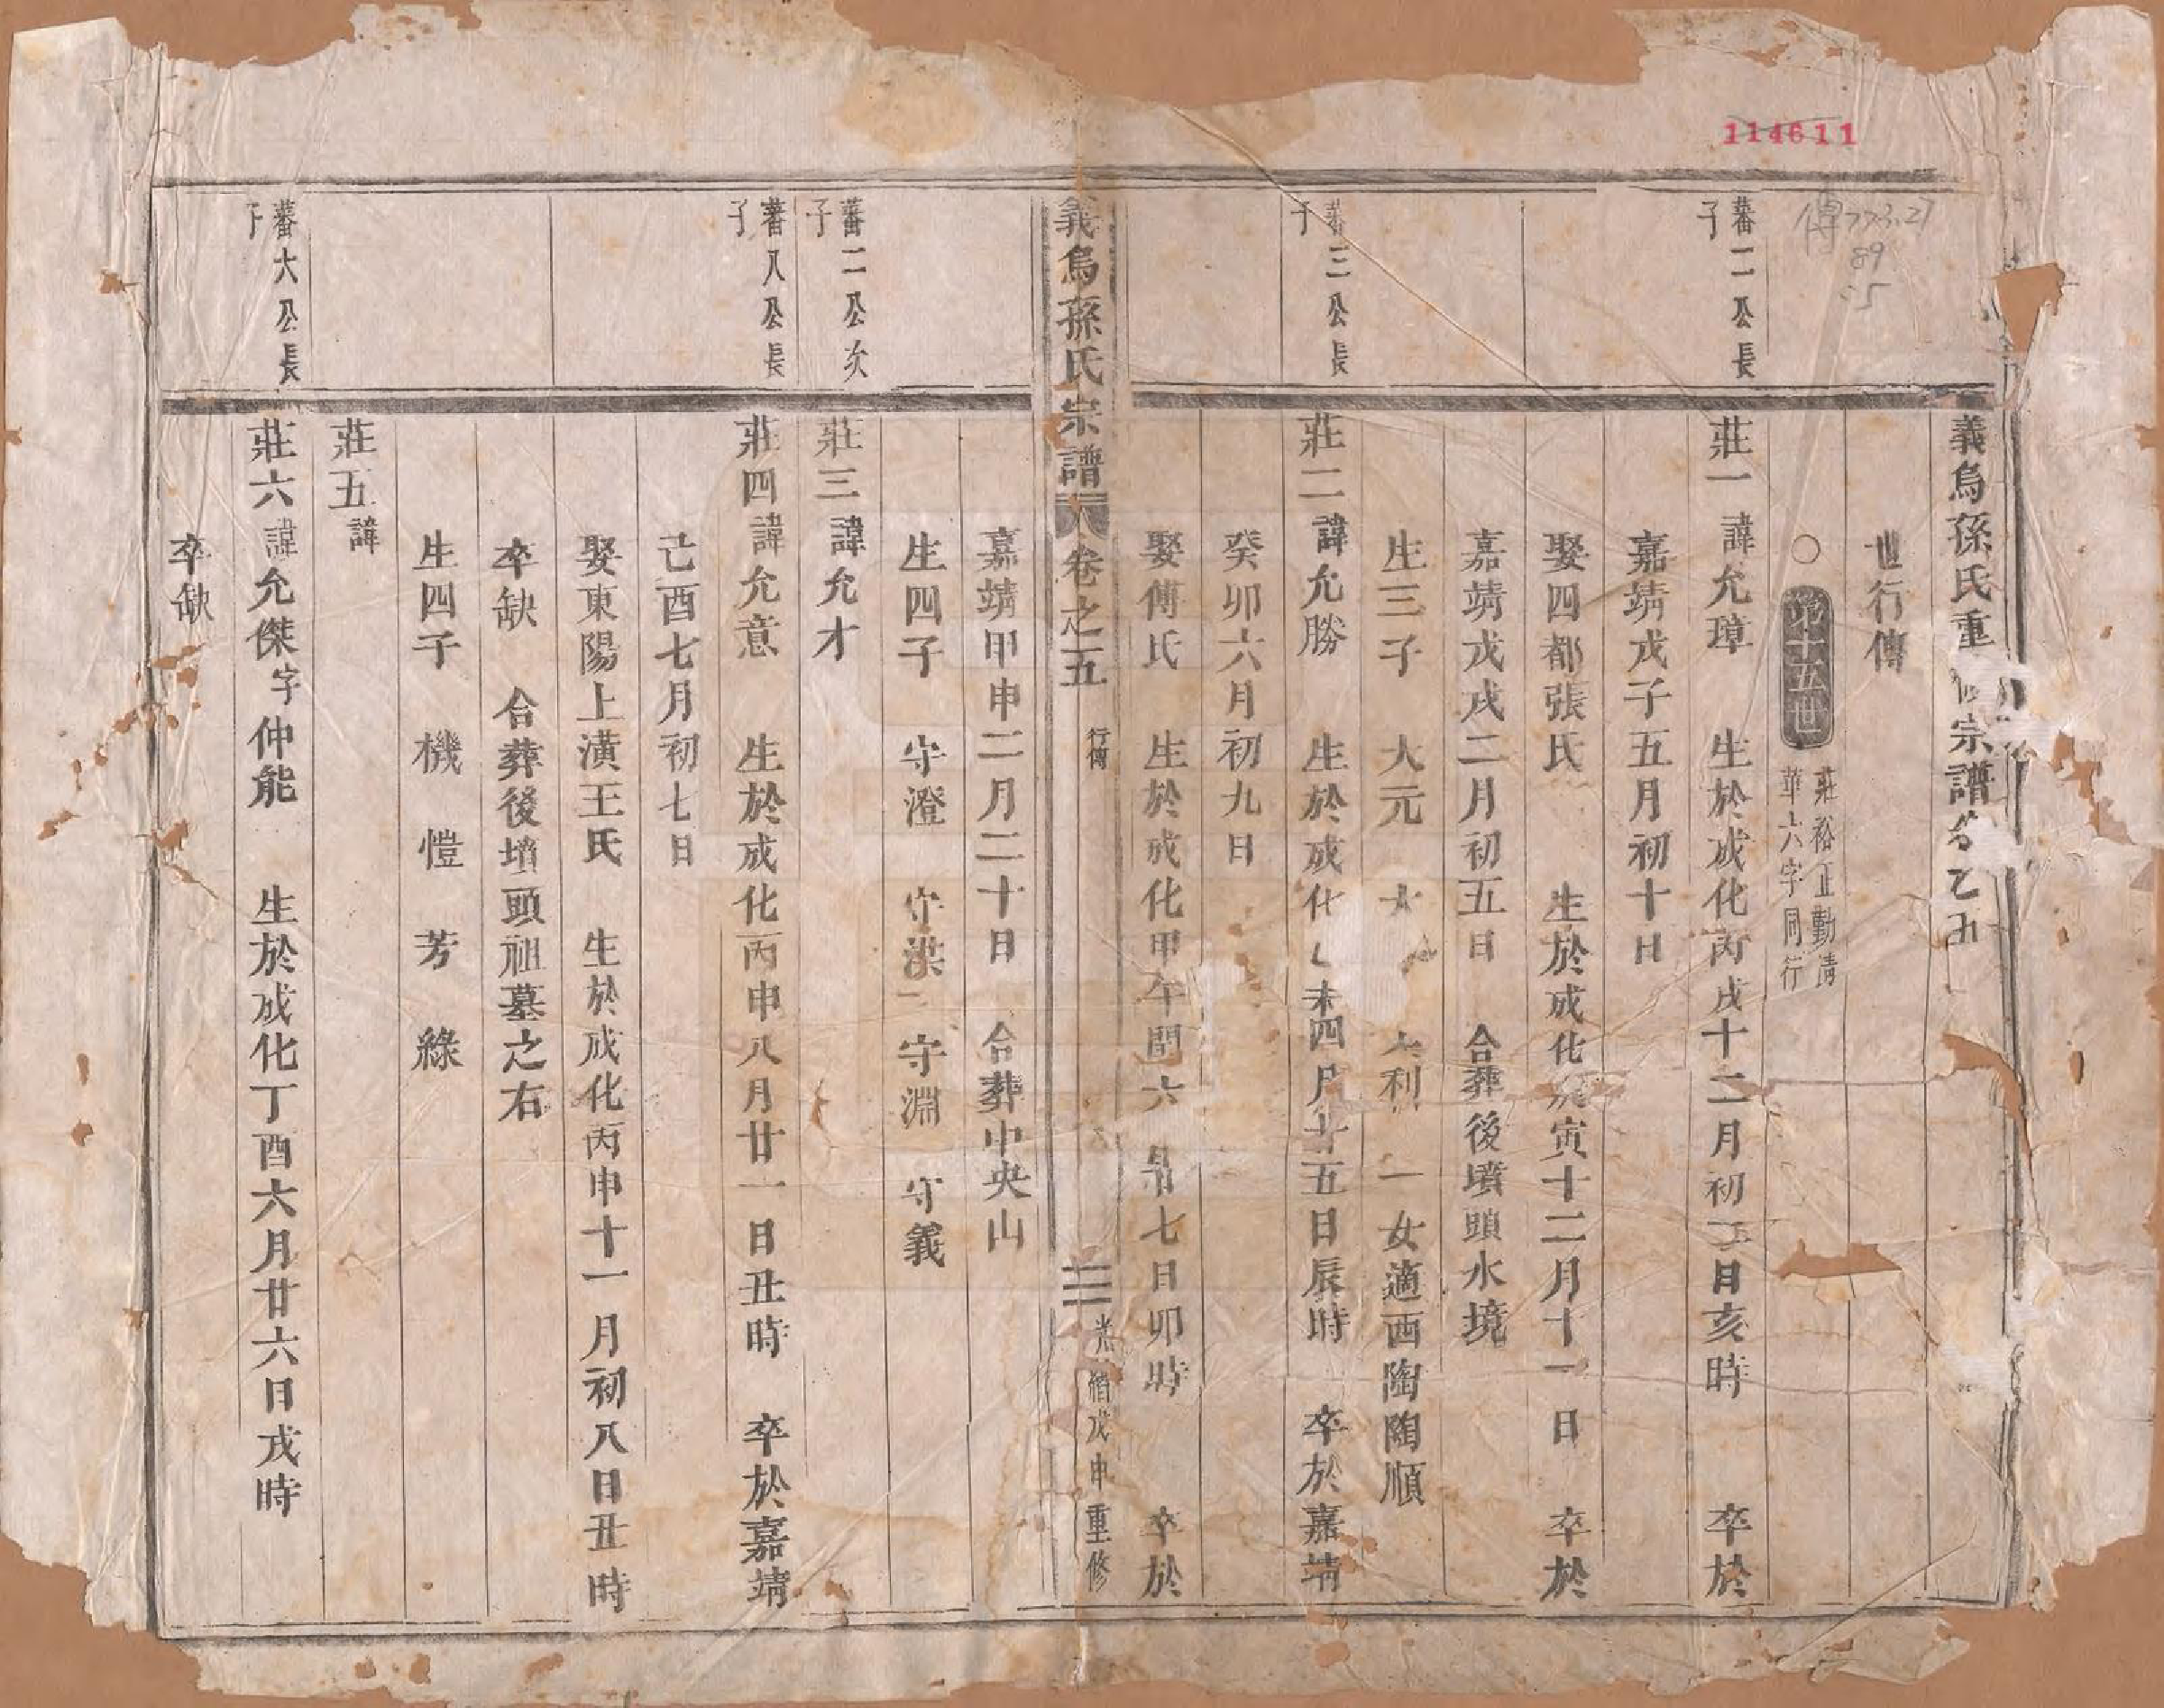 114611
傳773.27
89
:5
義烏孫氏重修宗譜卷之五
世行傳
○第十五世 莊裕正勤清
華六字同行
蕃一公長
子
莊一諱允璋 生於成化丙戌十二月初 日亥時 卒於
嘉靖戊子五月初十日
娶四都張氏 生於成化 寅十二月十一日 卒於
嘉靖戊戌二月初五日 合葬後墳頭水境
生三子 大元 大 大利 一女適西陶陶順
蕃三公長
子
莊二諱允勝 生於成化 未四月廿五日辰時 卒於嘉靖
癸卯六月初九日
娶傅氏 生於成化甲午閏六月廿七日卯時 卒於
義烏孫氏宗譜 卷之五 行傳 三 光緒戊申重修
嘉靖甲申二月二十日 合葬中央山
生四子 守澄 守洪 守淵 守義
蕃二公次
子
莊三諱允才
蕃八公長
子
莊四諱允意 生於成化丙申八月廿一日丑時 卒於嘉靖
己酉七月初七日
娶東陽上潢王氏 生於成化丙申十一月初八日丑時
卒缺 合葬後墳頭祖墓之右
生四子 機 愷 芳 綠
莊五諱
蕃六公長
子
莊六諱允傑字仲能 生於成化丁酉六月廿六日戌時
卒缺